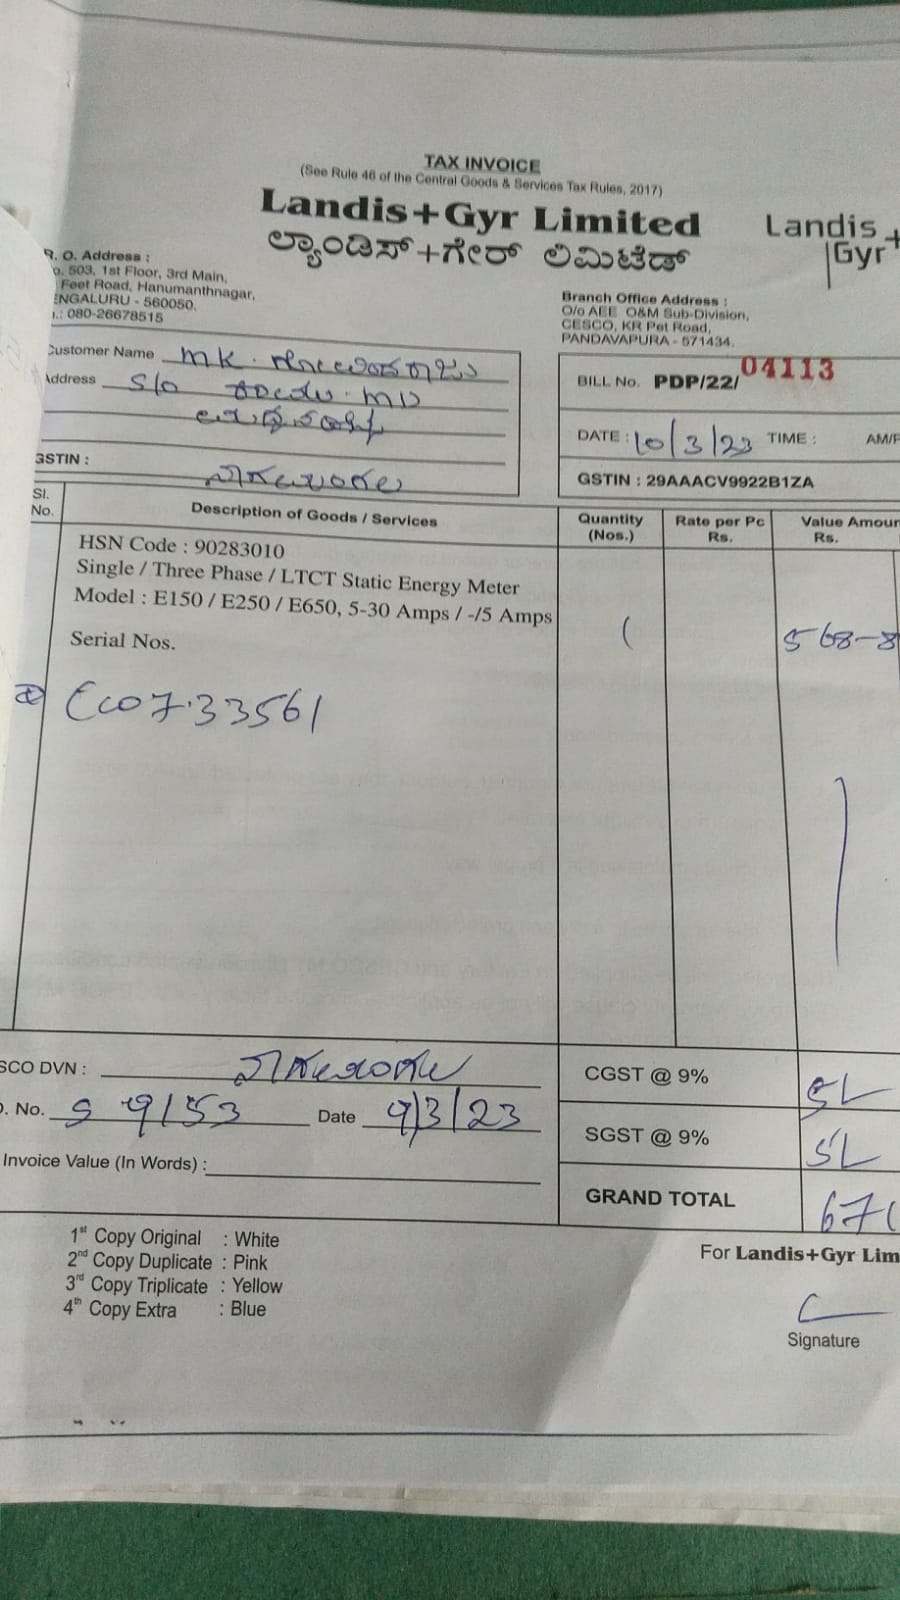 TAX INVOICE
(See Rule 46 of the Central Goods & Services Tax Rules, 2017)
Landis+Gyr Limited
ಲ್ಯಾಂಡಿಸ್+ಗೇರ್ ಲಿಮಿಟೆಡ್
Landis+
Gyr
R. O. Address :
503, 1st Floor, 3rd Main,
Feet Road, Hanumanthnagar,
ENGALURU - 560050.
.: 080-26678515
Branch Office Address :
O/o AEE O&M Sub-Division,
CESCO, KR Pet Road,
PANDAVAPURA - 571434.
Customer Name MK.
Address S/o
GSTIN :
BILL No. PDP/22/ 04113
DATE : 10/3/23 TIME : AM/P
GSTIN : 29AAACV9922B1ZA
Sl. No. Description of Goods / Services Quantity (Nos.) Rate per Pc Rs. Value Amoun Rs.
HSN Code : 90283010
Single / Three Phase / LTCT Static Energy Meter
Model : E150 / E250 / E650, 5-30 Amps / -/5 Amps
Serial Nos. 568-8
33561
SCO DVN :
CGST @ 9%
. No. Date 9/3/23
SGST @ 9%
Invoice Value (In Words) :
GRAND TOTAL 67
1st Copy Original : White
2nd Copy Duplicate : Pink
3rd Copy Triplicate : Yellow
4th Copy Extra : Blue
For Landis+Gyr Lim
Signature